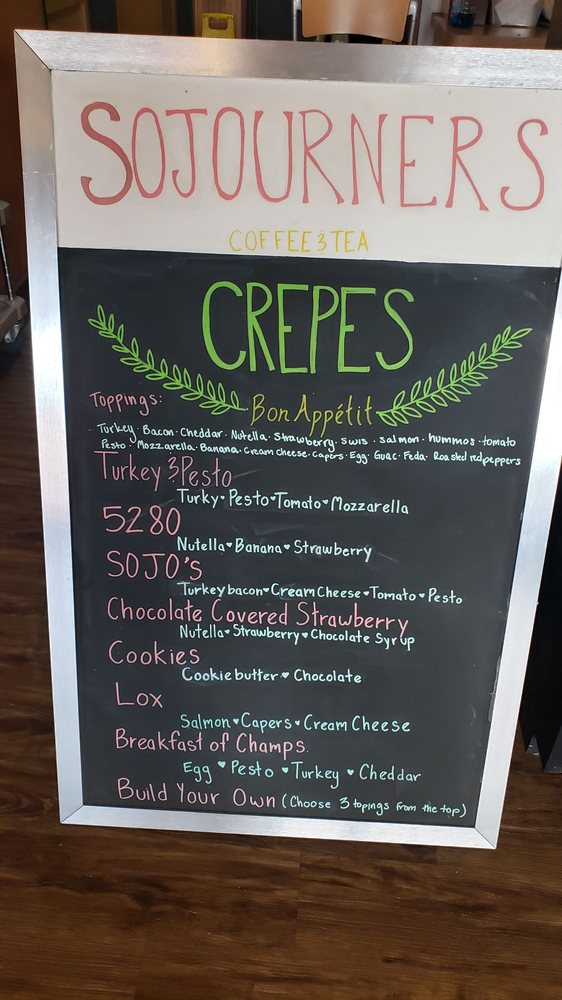 SOJOURNERS
COFFEE & TEA
CREPES
Bon Appétit
Toppings:
Turkey · Bacon · Cheddar · Nutella · Strawberry · Swis · salmon · hummos · tomato
Pesto · Mozzarella · Banana · Cream cheese · Capers · Egg · Guac · Feda · Roasted redpeppers
Turkey & Pesto
Turky · Pesto · Tomato · Mozzarella
5280
Nutella ♥ Banana ♥ Strawberry
SOJO's
Turkey bacon ♥ Cream Cheese ♥ Tomato ♥ Pesto
Chocolate Covered Strawberry
Nutella ♥ Strawberry ♥ Chocolate Syrup
Cookies
Cookie butter ♥ Chocolate
Lox
Salmon ♥ Capers ♥ Cream Cheese
Breakfast of Champs.
Egg ♥ Pesto ♥ Turkey ♥ Cheddar
Build Your Own (Choose 3 topings from the top)